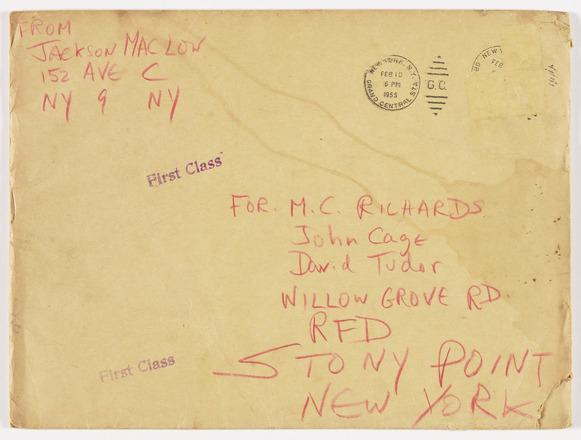 FROM
JACKSON MAC LOW
152 AVE C
NY 9 NY
NEW YORK, N.Y.
FEB 10
6 PM
1955
GRAND CENTRAL STA.
G.C.
NEW Y
FEB
GR
First Class
FOR. M.C. RICHARDS
John Cage
David Tudor
WILLOW GROVE RD.
RFD
STONY POINT
NEW YORK
First Class